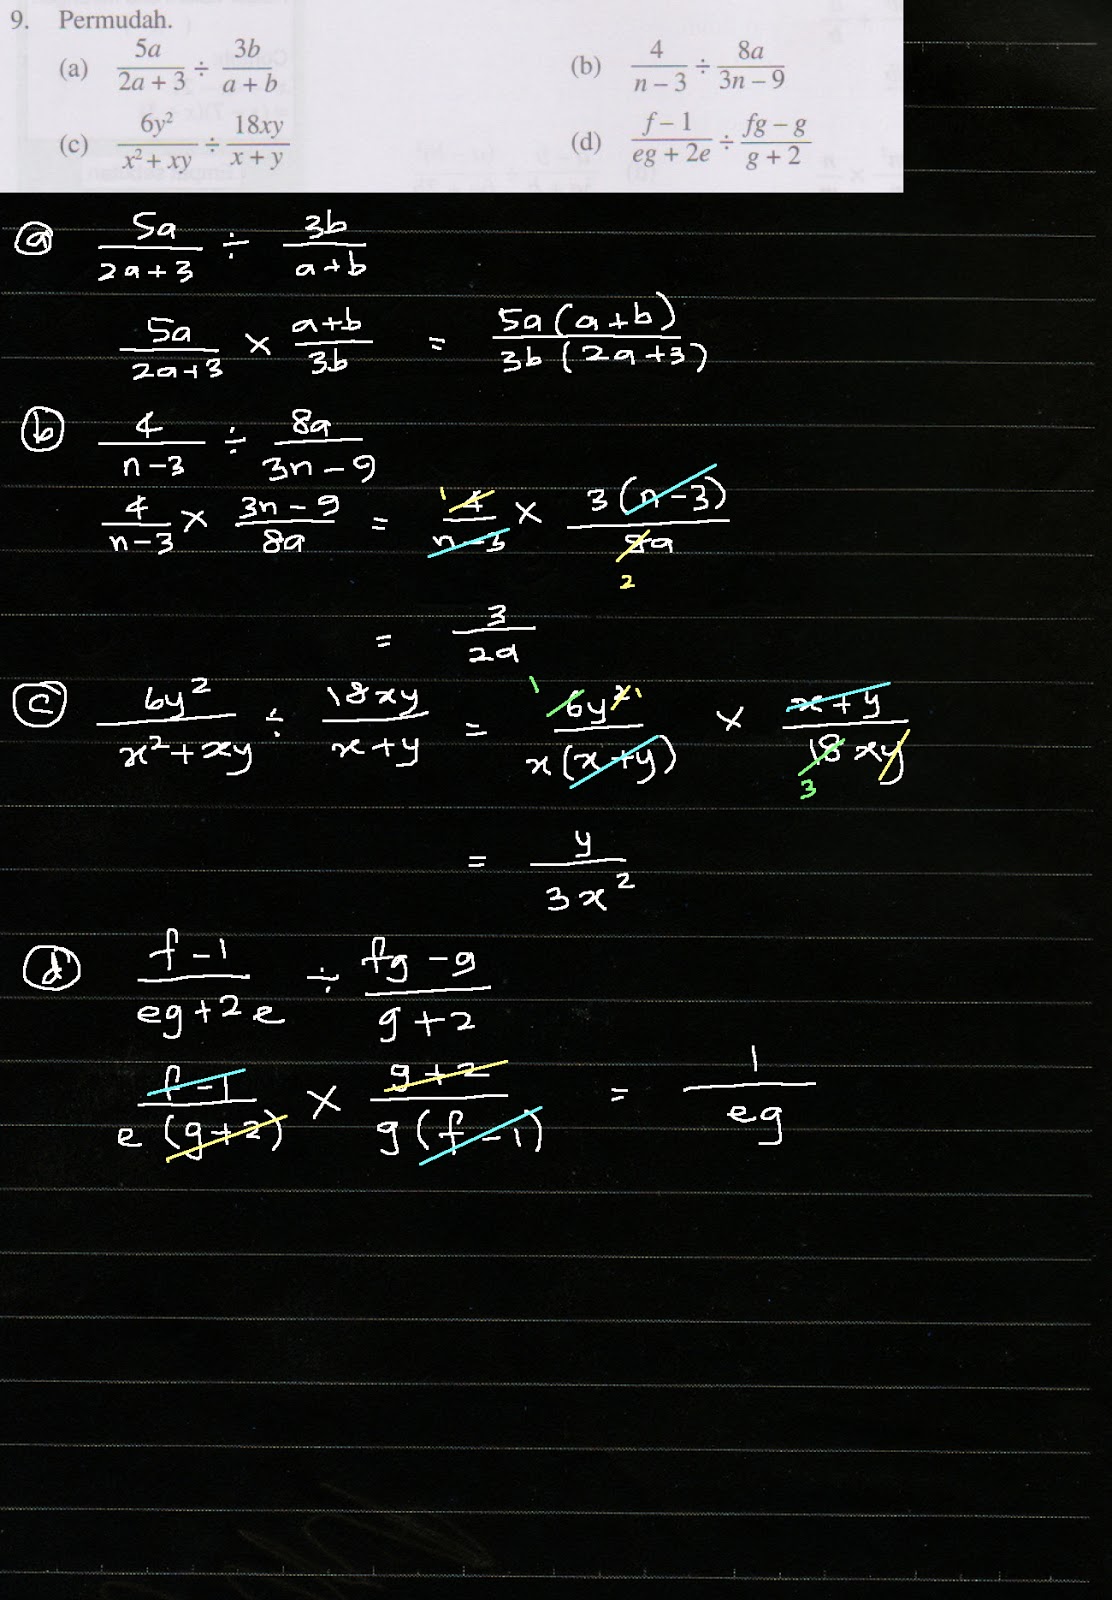 9. Permudah.
(a) 5a/(2a + 3) ÷ 3b/(a + b)
(b) 4/(n – 3) ÷ 8a/(3n – 9)
(c) 6y²/(x² + xy) ÷ 18xy/(x + y)
(d) (f – 1)/(eg + 2e) ÷ (fg – g)/(g + 2)
(a) 5a/(2a+3) ÷ 3b/(a+b)
5a/(2a+3) × (a+b)/3b = 5a(a+b)/3b(2a+3)
(b) 4/(n–3) ÷ 8a/(3n–9)
4/(n–3) × (3n–9)/8a = 4/(n–3) × 3(n–3)/8a
1 2
= 3/2a
(c) 6y²/(x²+xy) ÷ 18xy/(x+y) = 6y²/x(x+y) × (x+y)/18xy
1 1 3
= y/3x²
(d) (f–1)/(eg+2e) ÷ (fg–g)/(g+2)
(f–1)/e(g+2) × (g+2)/g(f–1) = 1/eg